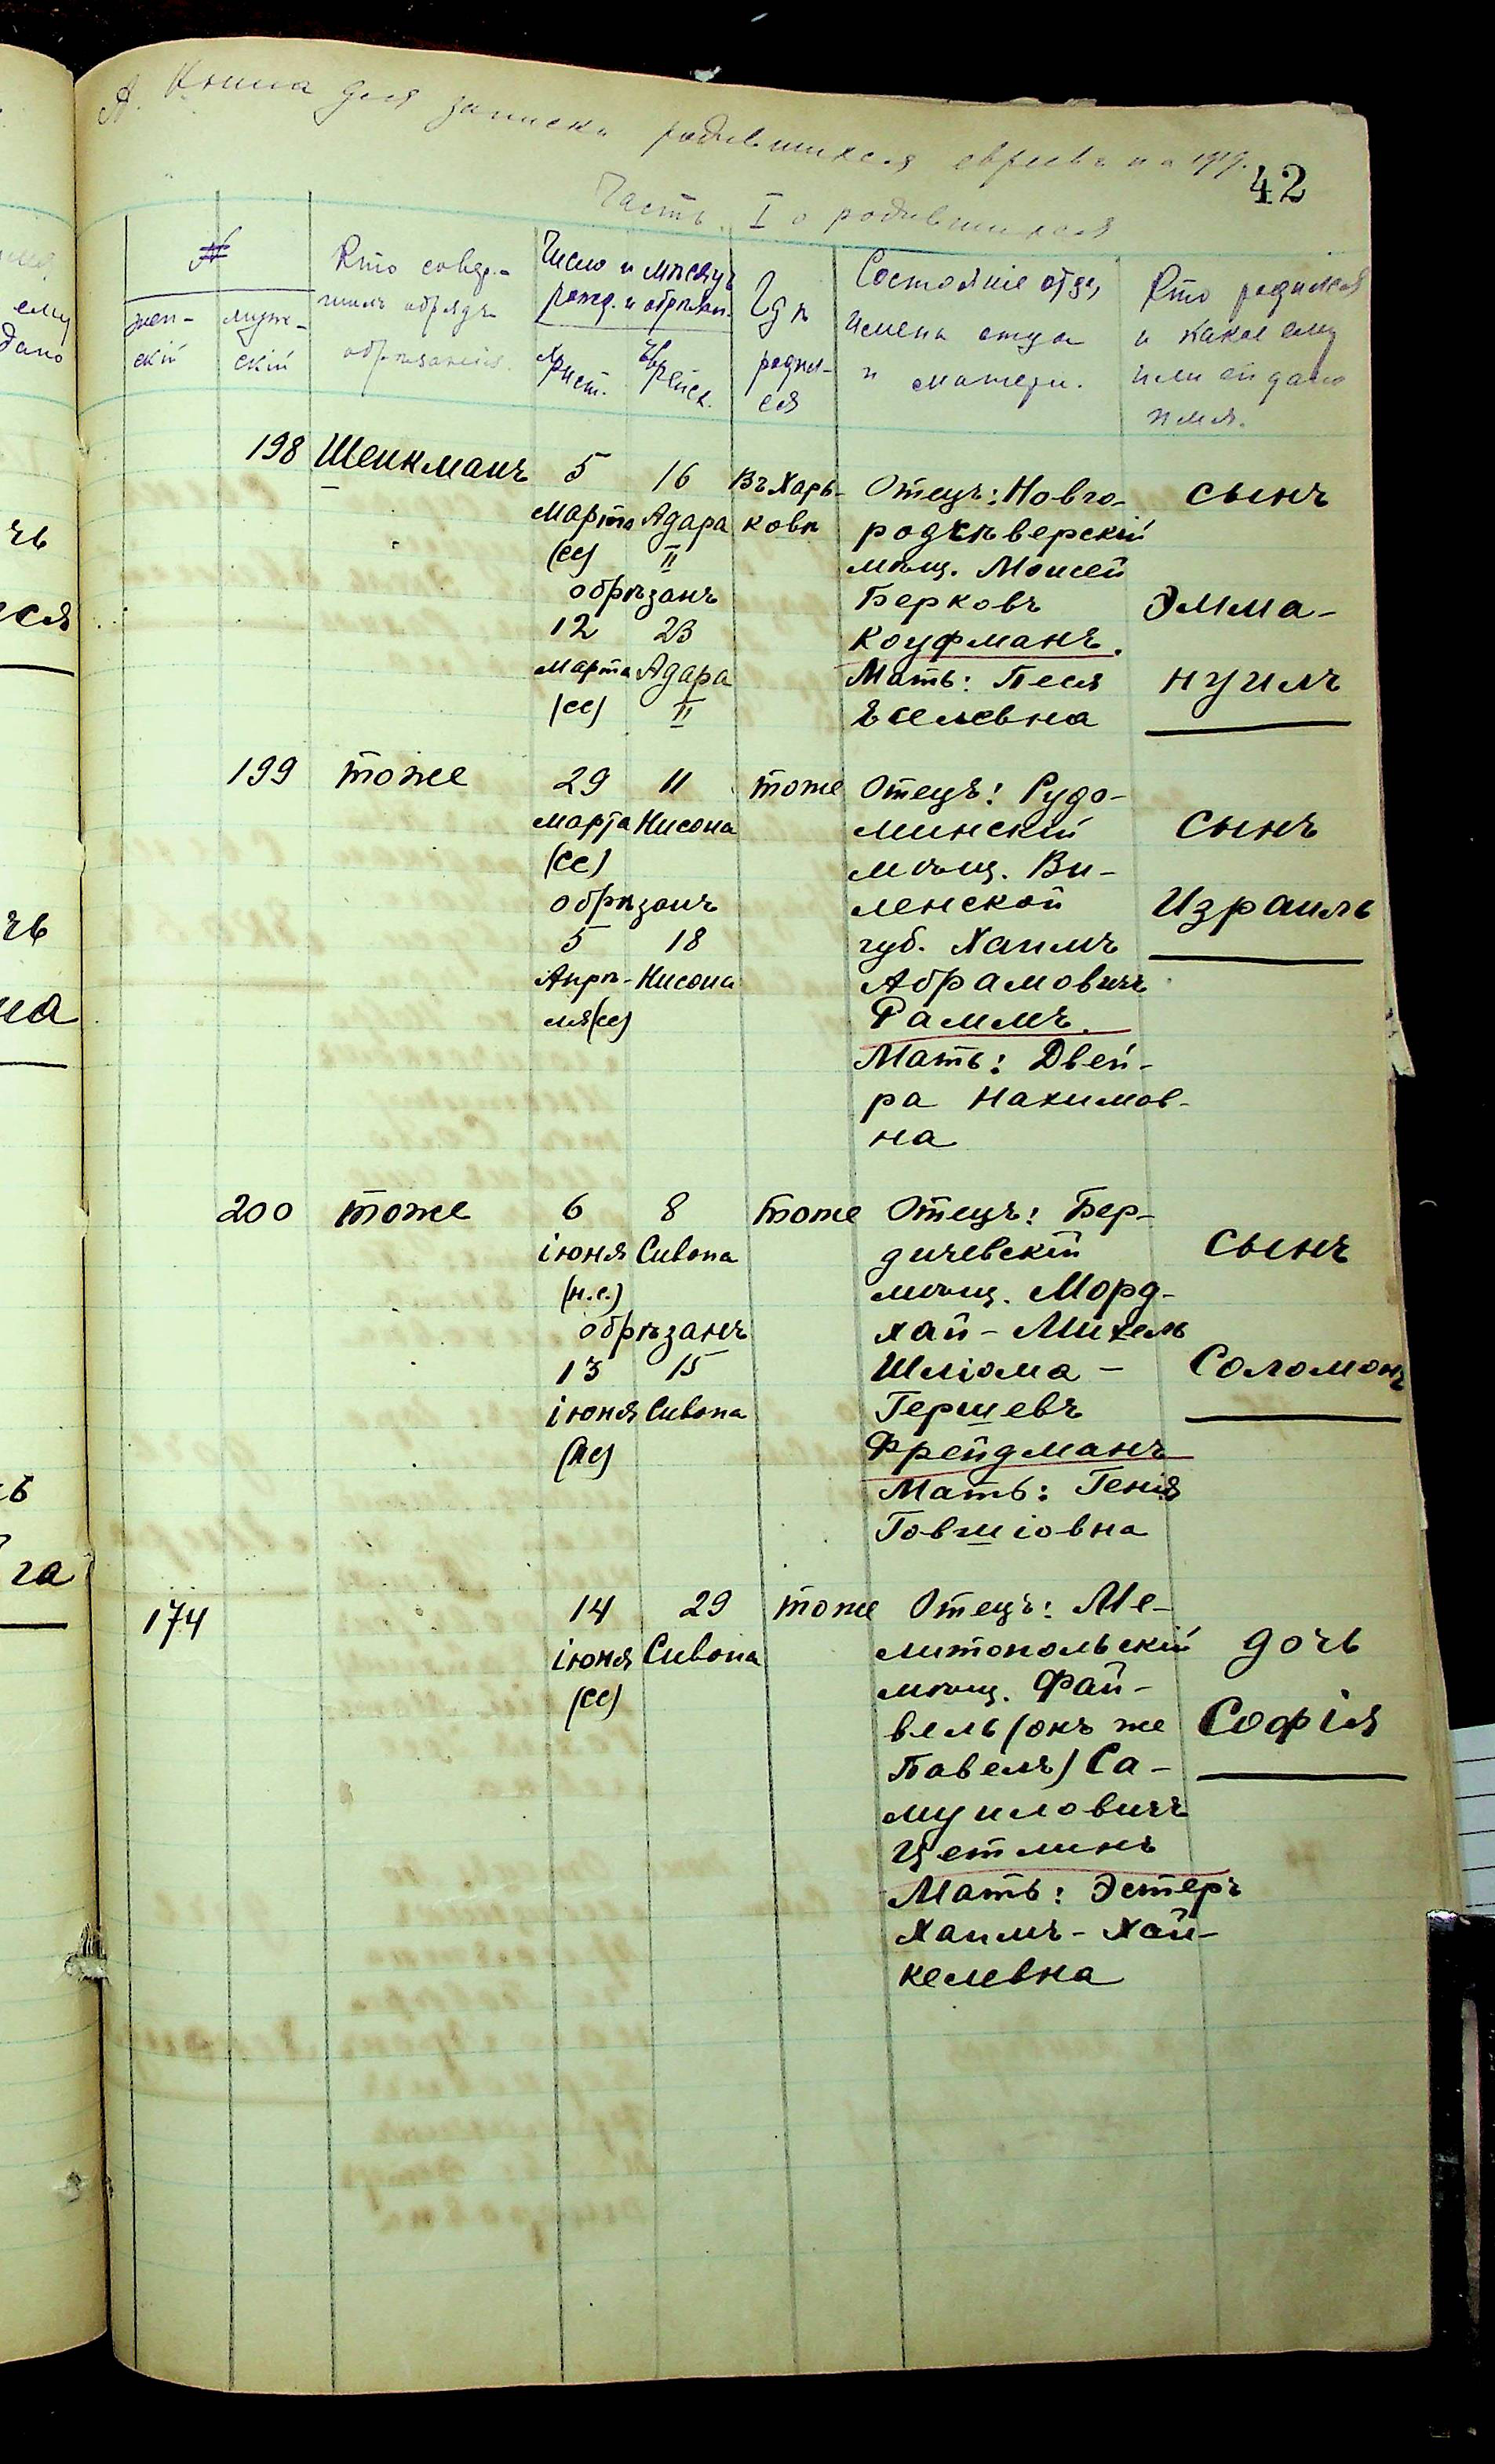 А. Книга для записки родившихся евреевъ на 1919.
42
Часть I о родившихся
№
жен-
скій
муже-
скій
Кто совер-
шилъ обрядъ
обрѣзанія.
Число и мѣсяцъ
рожд. и обрѣзан.
Христ.
Еврейск.
Гдѣ
родил-
ся
Состояніе отца,
имена отца
и матери.
Кто родился
и какое ему
или ей дано
имя.
198 Шенкманъ
5 16
Марта Адара
(сс) II
обрѣзанъ
12 23
марта Адара
(сс) II
Въ Харь-
ковѣ
Отецъ: Новго-
родсѣверскій
мѣщ. Моисей
Берковъ
Кауфманъ.
Мать: Песя
Іоселевна
сынъ
Эмма-
нуилъ
199 тоже
29 11
марта Нисона
(сс)
обрѣзанъ
5 18
Апрѣ- Нисона
ля(сс)
тоже
Отецъ: Рудо-
минскій
мѣщ. Ви-
ленской
губ. Хаимъ
Абрамовичъ
Раммъ.
Мать: Двей-
ра Нахимов-
на
сынъ
Израиль
200 тоже
6 8
іюня Сивона
(н.с.)
обрѣзанъ
13 15
іюня Сивона
(нс)
тоже
Отецъ: Бер-
дичевскій
мѣщ. Морд-
хай-Михель
Шліома-
Гершевъ
Фрейдманъ
Мать: Геня
Говшіовна
сынъ
Соломонъ
174
14 29
іюня Сивона
(сс)
тоже
Отецъ: Ме-
литопольскій
мѣщ. Фай-
вель (онъ же
Павелъ) Са-
муиловичъ
Цетлинъ
Мать: Эстеръ
Хаимъ-Хай-
келевна
дочь
Софія